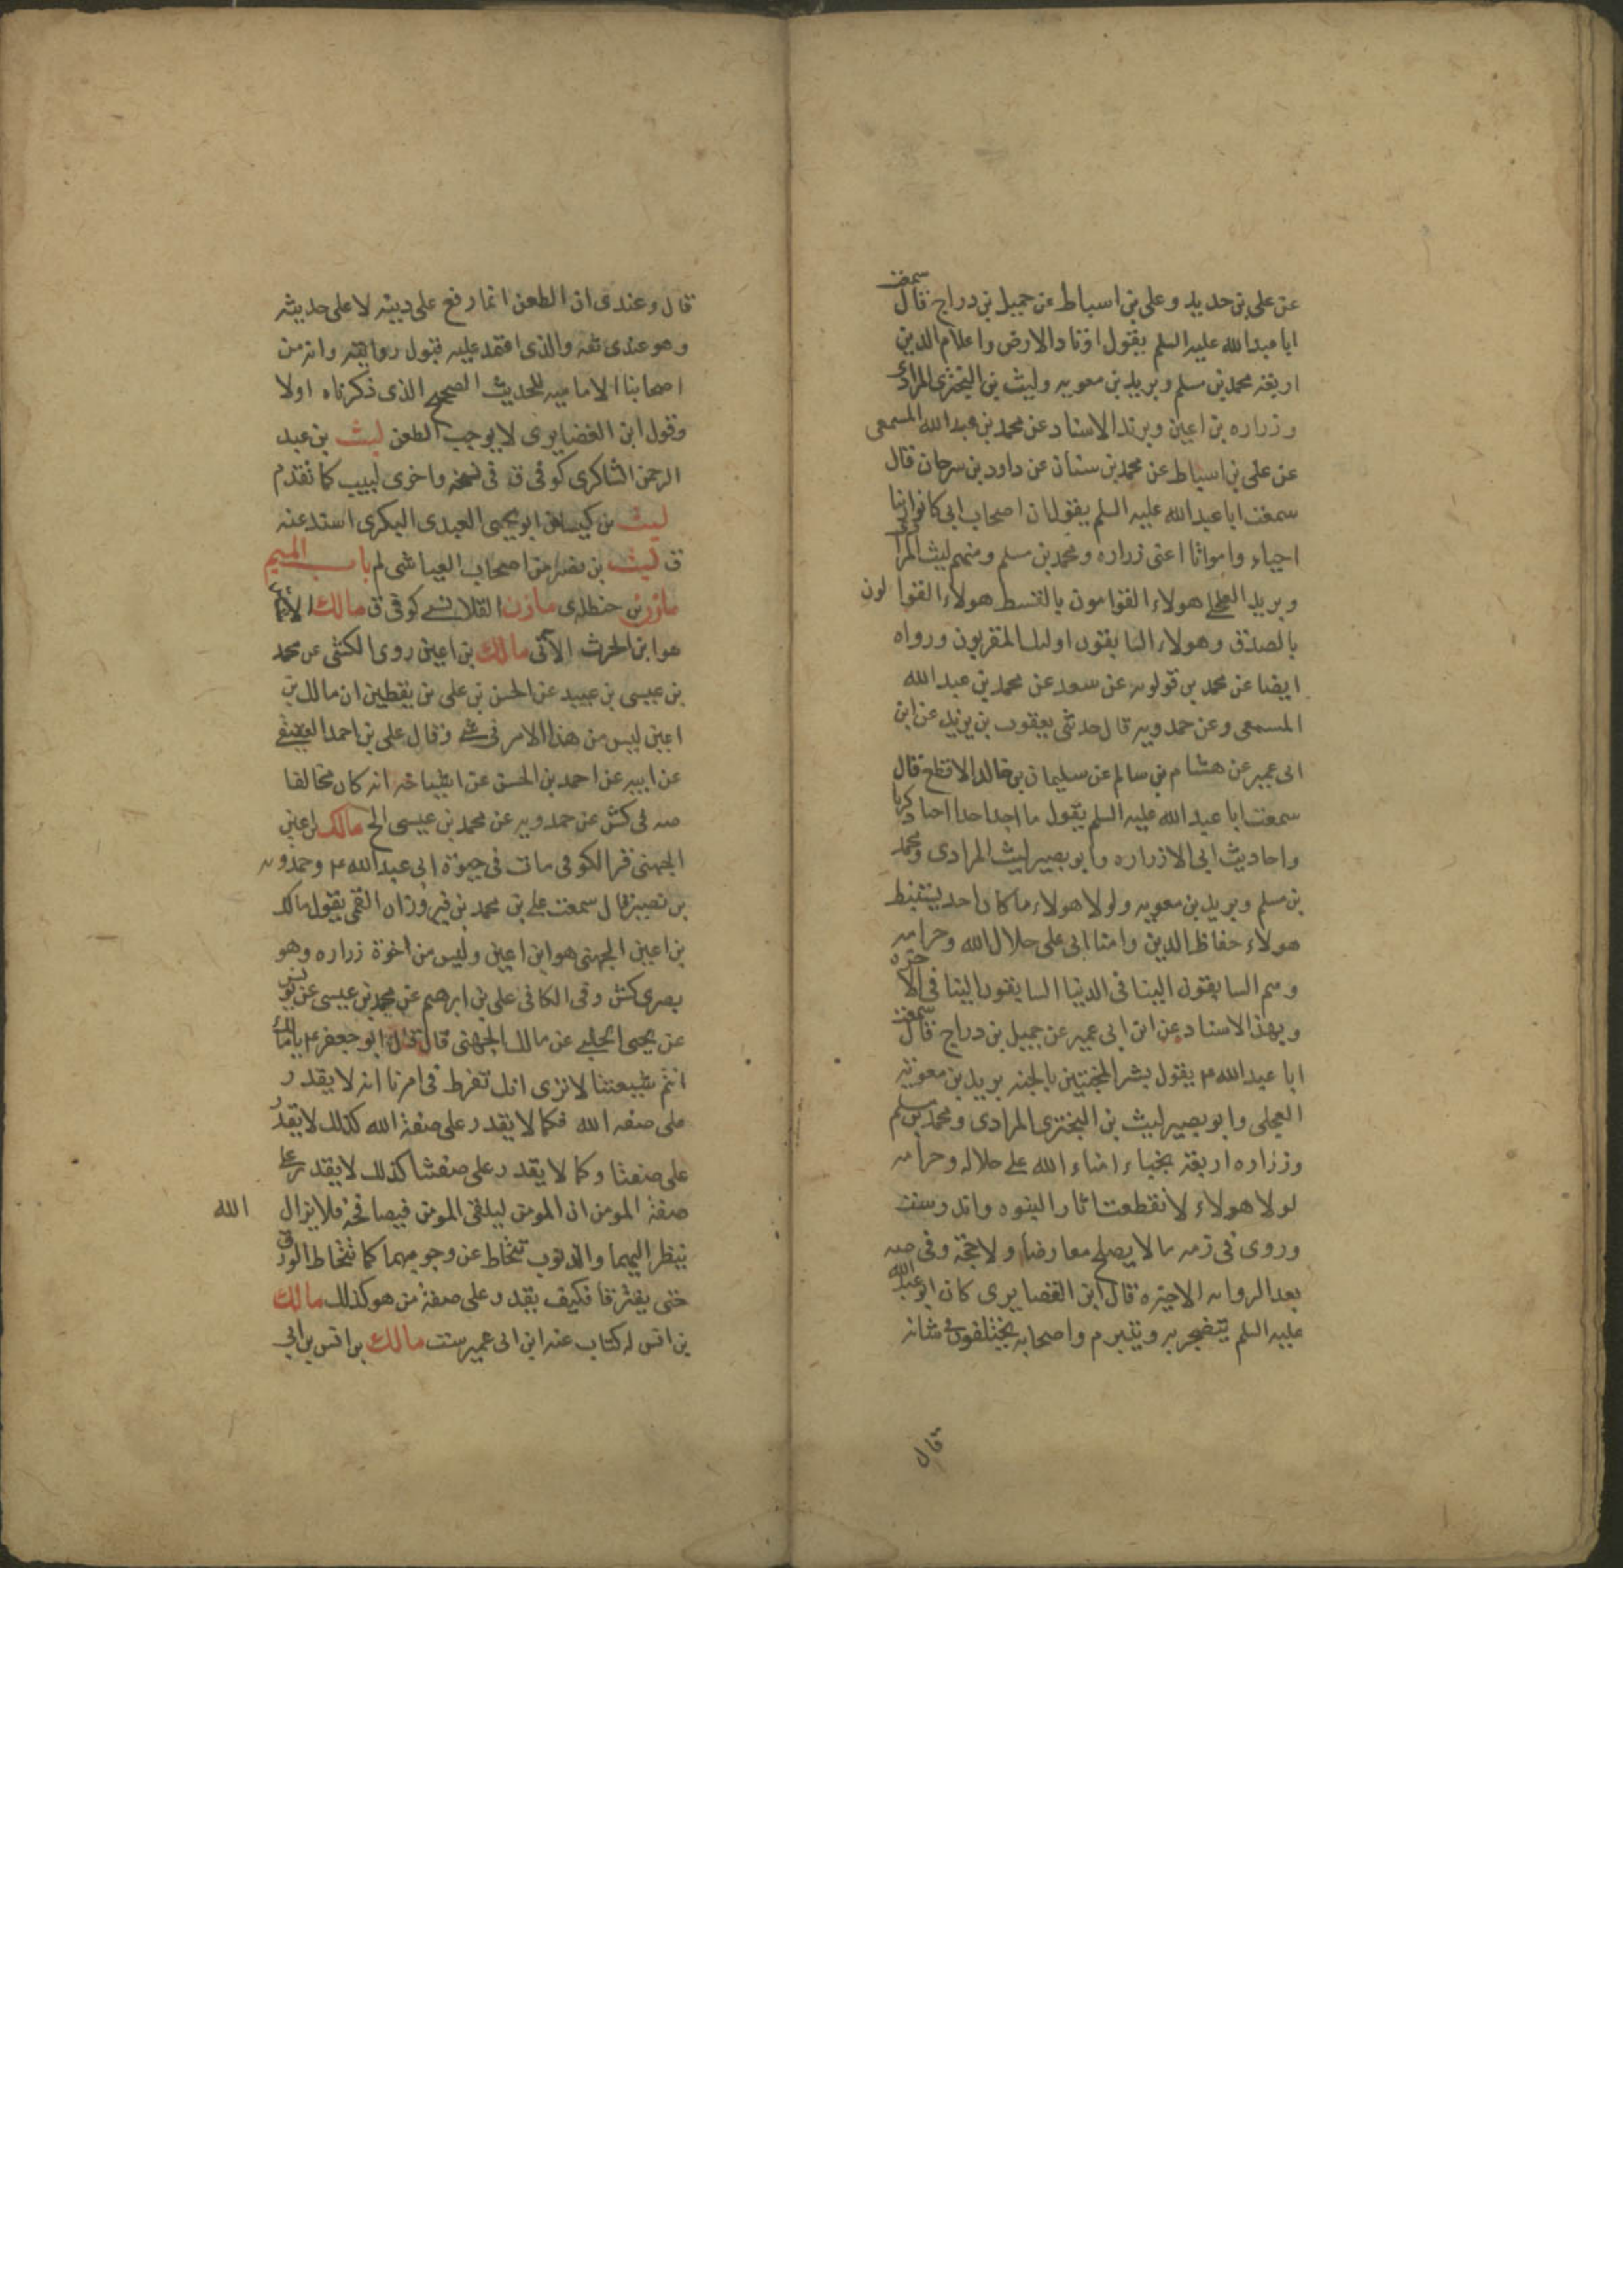 عن على بن حديد وعلى بن اسباط عن جميل بن دراج قال سمعت
ابا عبد الله عليه السلم يقول اوتاد الارض واعلام الدين
اربعة محمد بن مسلم وبريد بن معويه وليث بن البخترى المرادى
وزراره بن اعين وبهذ الاسناد عن محمد بن عبد الله المسمعى
عن على بن اسباط عن محمد بن سنان عن داود بن سرحان قال
سمعت ابا عبد الله عليه السلم يقول ان اصحاب ابى كانوا زينا
احياء وامواتا اعنى زراره ومحمد بن مسلم ومنهم ليث المرادى
وبريد العجلى هولاء القوامون بالقسط هولاء القوالون
بالصدق وهولاء السابقون اولئك المقربون ورواه
ايضا عن محمد بن قولويه عن سعد عن محمد بن عبد الله
المسمعى وعن حمدويه قال حدثنى يعقوب بن يزيد عن ابن
ابى عمير عن هشام بن سالم عن سليمان بن خالد الاقطع قال
سمعت ابا عبد الله عليه السلم يقول ما اجد احدا احيا ذكرنا
واحاديث ابى الا زراره وابو بصير ليث المرادى ومحمد
بن مسلم وبريد بن معويه ولولا هولاء ما كان احد يستنبط
هولاء حفاظ الدين وامنا ابى على حلال الله وحرامه
وهم السابقون الينا فى الدنيا السابقون الينا فى الاخره
وبهذ الاسناد عن ابن ابى عمير عن جميل بن دراج قال سمعت
ابا عبد الله ع يقول بشر المخبتين بالجنه بريد بن معوية
العجلى وابو بصير ليث بن البخترى المرادى ومحمد بن مسلم
وزراره اربعة نجباء امناء الله على حلاله وحرامه
لولا هولاء لانقطعت اثار النبوه واندرست
وروى فى ذمه ما لا يصلح معارضا ولا حجة وفى صه
بعد الروايه الاخيره قال ابن الغضايرى كان ابو عبد الله
عليه السلم يتضجر به ويتبرم واصحابه يختلفون فى شانه
قال
قال وعندى ان الطعن انما رفع على دينه لا على حديثه
وهو عندى ثقه والذى اعتمد عليه قبول روايته وانه من
اصحابنا الاماميه للحديث الصحيح الذى ذكرناه اولا
وقول ابن الغضايرى لا يوجب الطعن ليث بن عبد
الرحمن الشاكرى كوفى ق فى نسخه واخرى لبيب كما تقدم
ليث بن كيسان ابو يحيى العبدى البكرى اسند عنه
ق ليث بن نصر من اصحاب العياشى لم باب الميم
مازن بن حنظله ى مازن القلانسى كوفى ق مالك
هو ابن الحرث الآتى مالك بن اعين روى الكشى عن محمد
بن عيسى بن عبيد عن الحسن بن على بن يقطين ان مالك بن
اعين ليس من هذا الامر فى شى وقال على بن احمد العقيقى
عن ابيه عن احمد بن الحسن عن اشياخه انه كان مخالفا
صه فى كش عن حمدويه عن محمد بن عيسى الخ مالك بن اعين
الجهنى قر الكوفى مات فى حيوة ابى عبد الله ع وحمدويه
بن نصير قال سمعت على بن محمد بن فيروزان القمى يقول مالك
بن اعين الجهنى هو ابن اعين وليس من اخوة زراره وهو
بصرى كش وفى الكافى على بن ابرهيم عن محمد بن عيسى عن يونس
عن يحيى الحلبى عن مالك الجهنى قال قال ابو جعفر ع يا مالك
انتم شيعتنا لا ترى انك تفرط فى امرنا انه لا يقدر
على صفه الله فكما لا يقدر على صفة الله كذلك لا يقدر
على صفتنا وكما لا يقدر على صفتنا كذلك لا يقدر على
صفة المومن ان المومن ليلقى المومن فيصافحه فلا يزال الله
ينظر اليهما والذنوب تتحاط عن وجوههما كما تتحاط الورق
حتى يفترقا فكيف يقدر على صفة من هو كذلك مالك
بن انس له كتاب عنه ابن ابى عمير ست مالك بن انس بن ابى